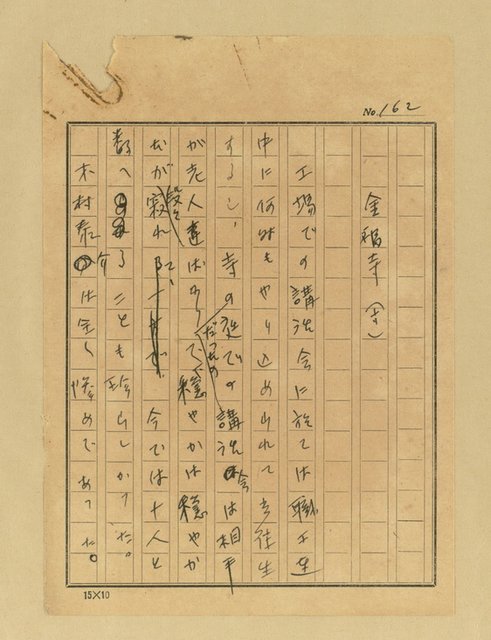 No. 162
金福寺 (一)
工場での講話会に於ては職工連
中に何時もやり込められて立往生
するし、寺の庭での講話会は相手
が老人達ばかりだったので、穏やかは穏やか
だが段々寂れて、今では十人と
数へることも珍らしかった。
木村泰介は全く惨めであった。
15×10